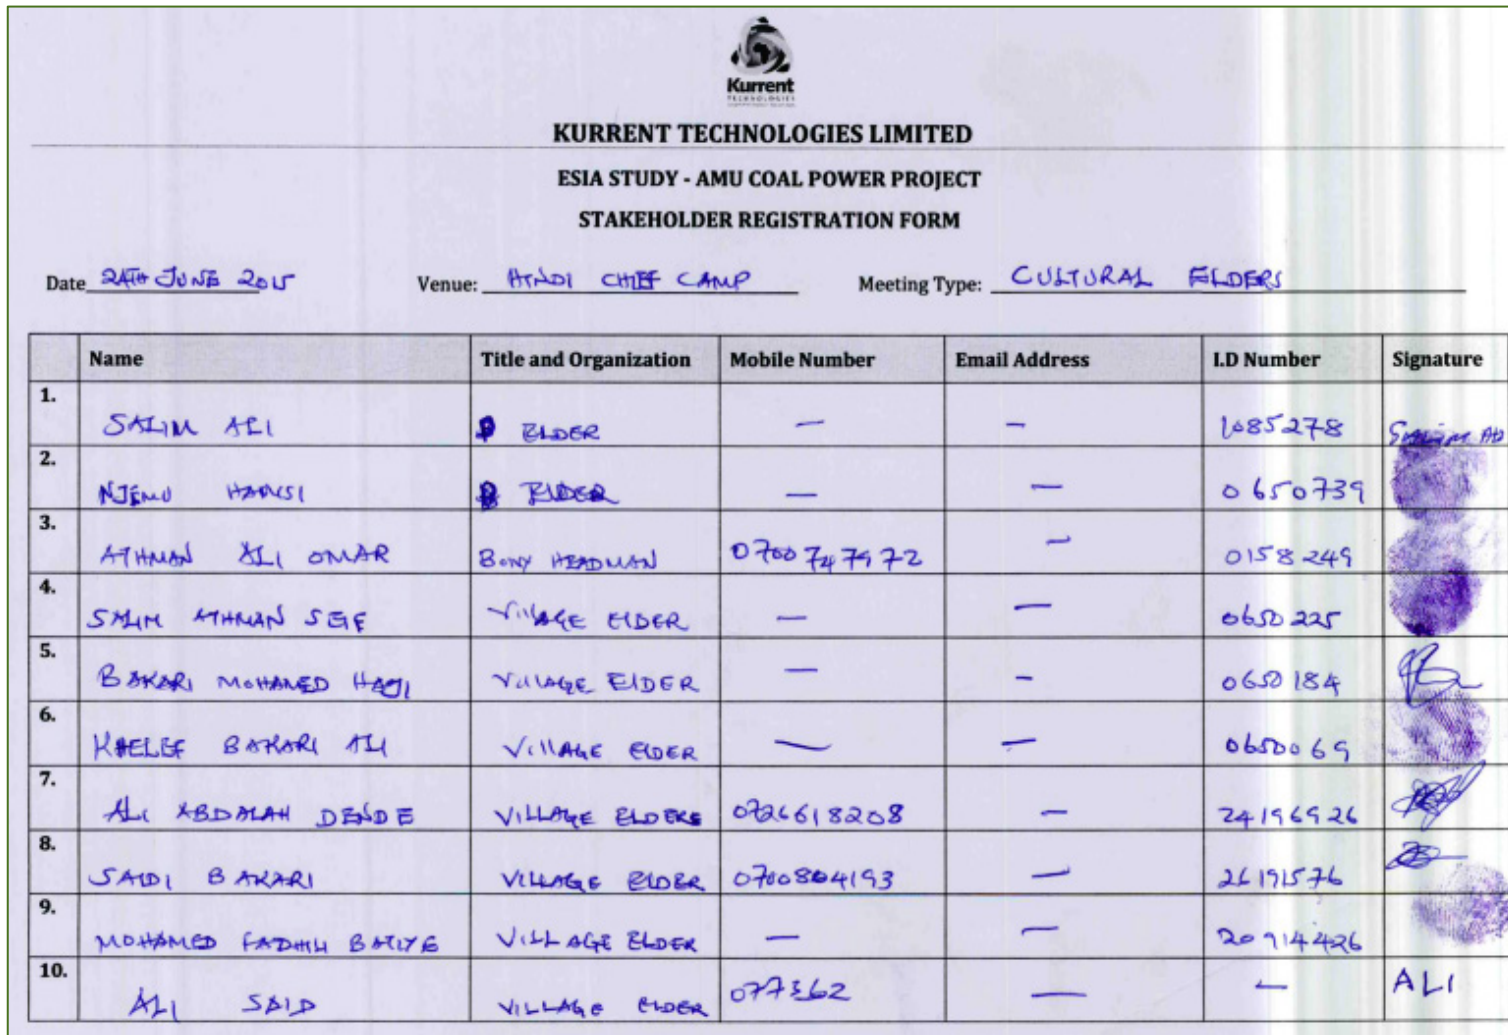 Kurrent
TECHNOLOGIES
KURRENT TECHNOLOGIES LIMITED
ESIA STUDY - AMU COAL POWER PROJECT
STAKEHOLDER REGISTRATION FORM
Date 24TH JUNE 2015 Venue: HINDI CHIEF CAMP Meeting Type: CULTURAL ELDERS
Name Title and Organization Mobile Number Email Address I.D Number Signature
1. SALIM ALI ELDER — — 1085278 Salim Ali
2. NJEMU HAMSI ELDER — — 0650739
3. ATHMAN ALI OMAR BONY HEADMAN 0700747972 — 0158249
4. SALIM ATHMAN SEIF VILLAGE ELDER — — 0650225
5. BAKARI MOHAMED HAJI VILLAGE ELDER — — 0650184
6. KHELEF BAKARI ALI VILLAGE ELDER — — 0650069
7. ALI ABDALAH DENDE VILLAGE ELDERS 0726618208 — 24196926
8. SAIDI BAKARI VILLAGE ELDER 0700804193 — 26191576
9. MOHAMED FADHILI VILLAGE ELDER — — 20914426
10. ALI SAID VILLAGE ELDER — — ALI